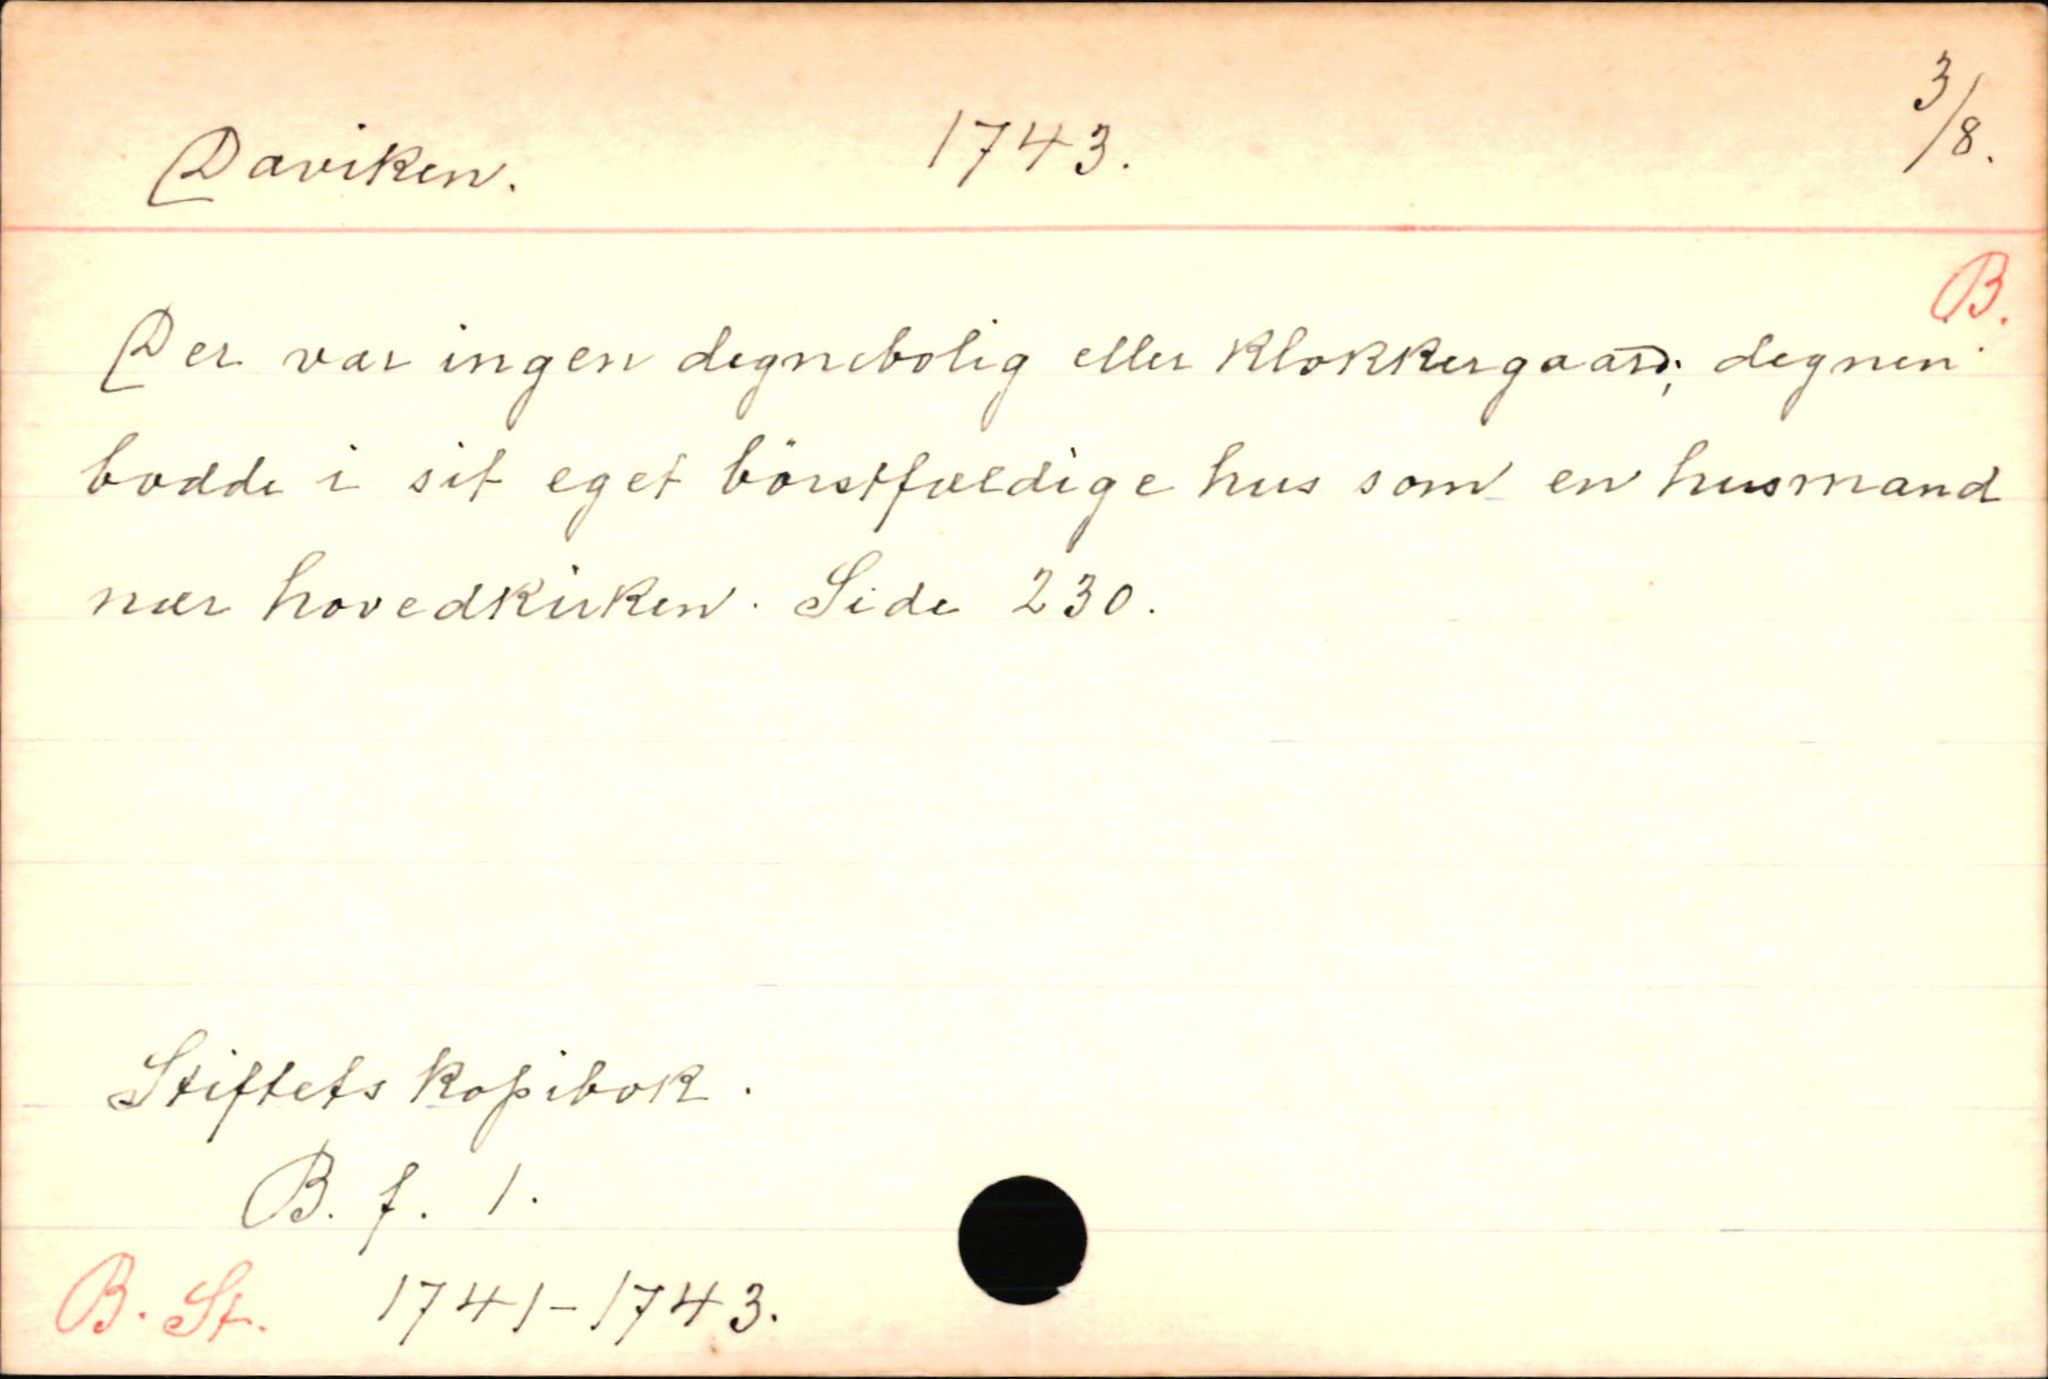 Daviken. 1743. 3/8.
B.
Der var ingen degnebolig eller klokkergaard; degnen
bodde i sit eget börstfældige hus som en husmand
nær hovedkirken. Side 230.
Stiftets kopibok.
B. f. 1.
B. St. 1741-1743.